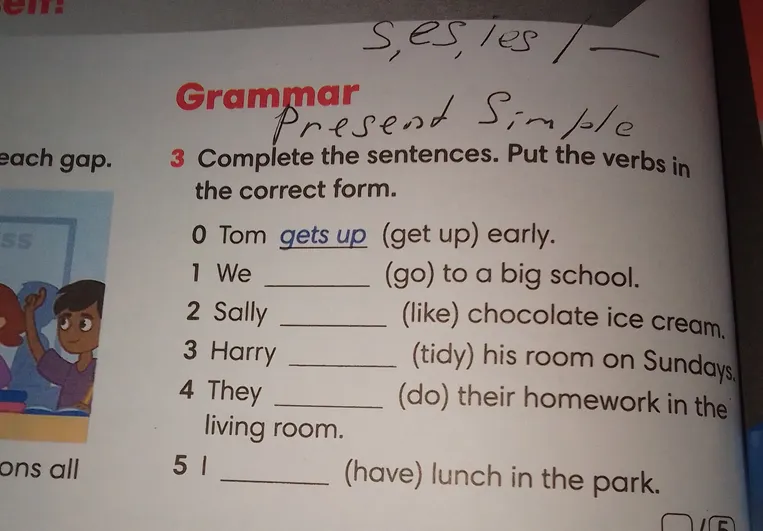 s, es, ies / —
Grammar
Present Simple
each gap.
3 Complete the sentences. Put the verbs in
the correct form.
0 Tom gets up (get up) early.
1 We ________ (go) to a big school.
2 Sally ________ (like) chocolate ice cream.
3 Harry ________ (tidy) his room on Sundays.
4 They ________ (do) their homework in the
living room.
ons all
5 I ________ (have) lunch in the park.
/ 5